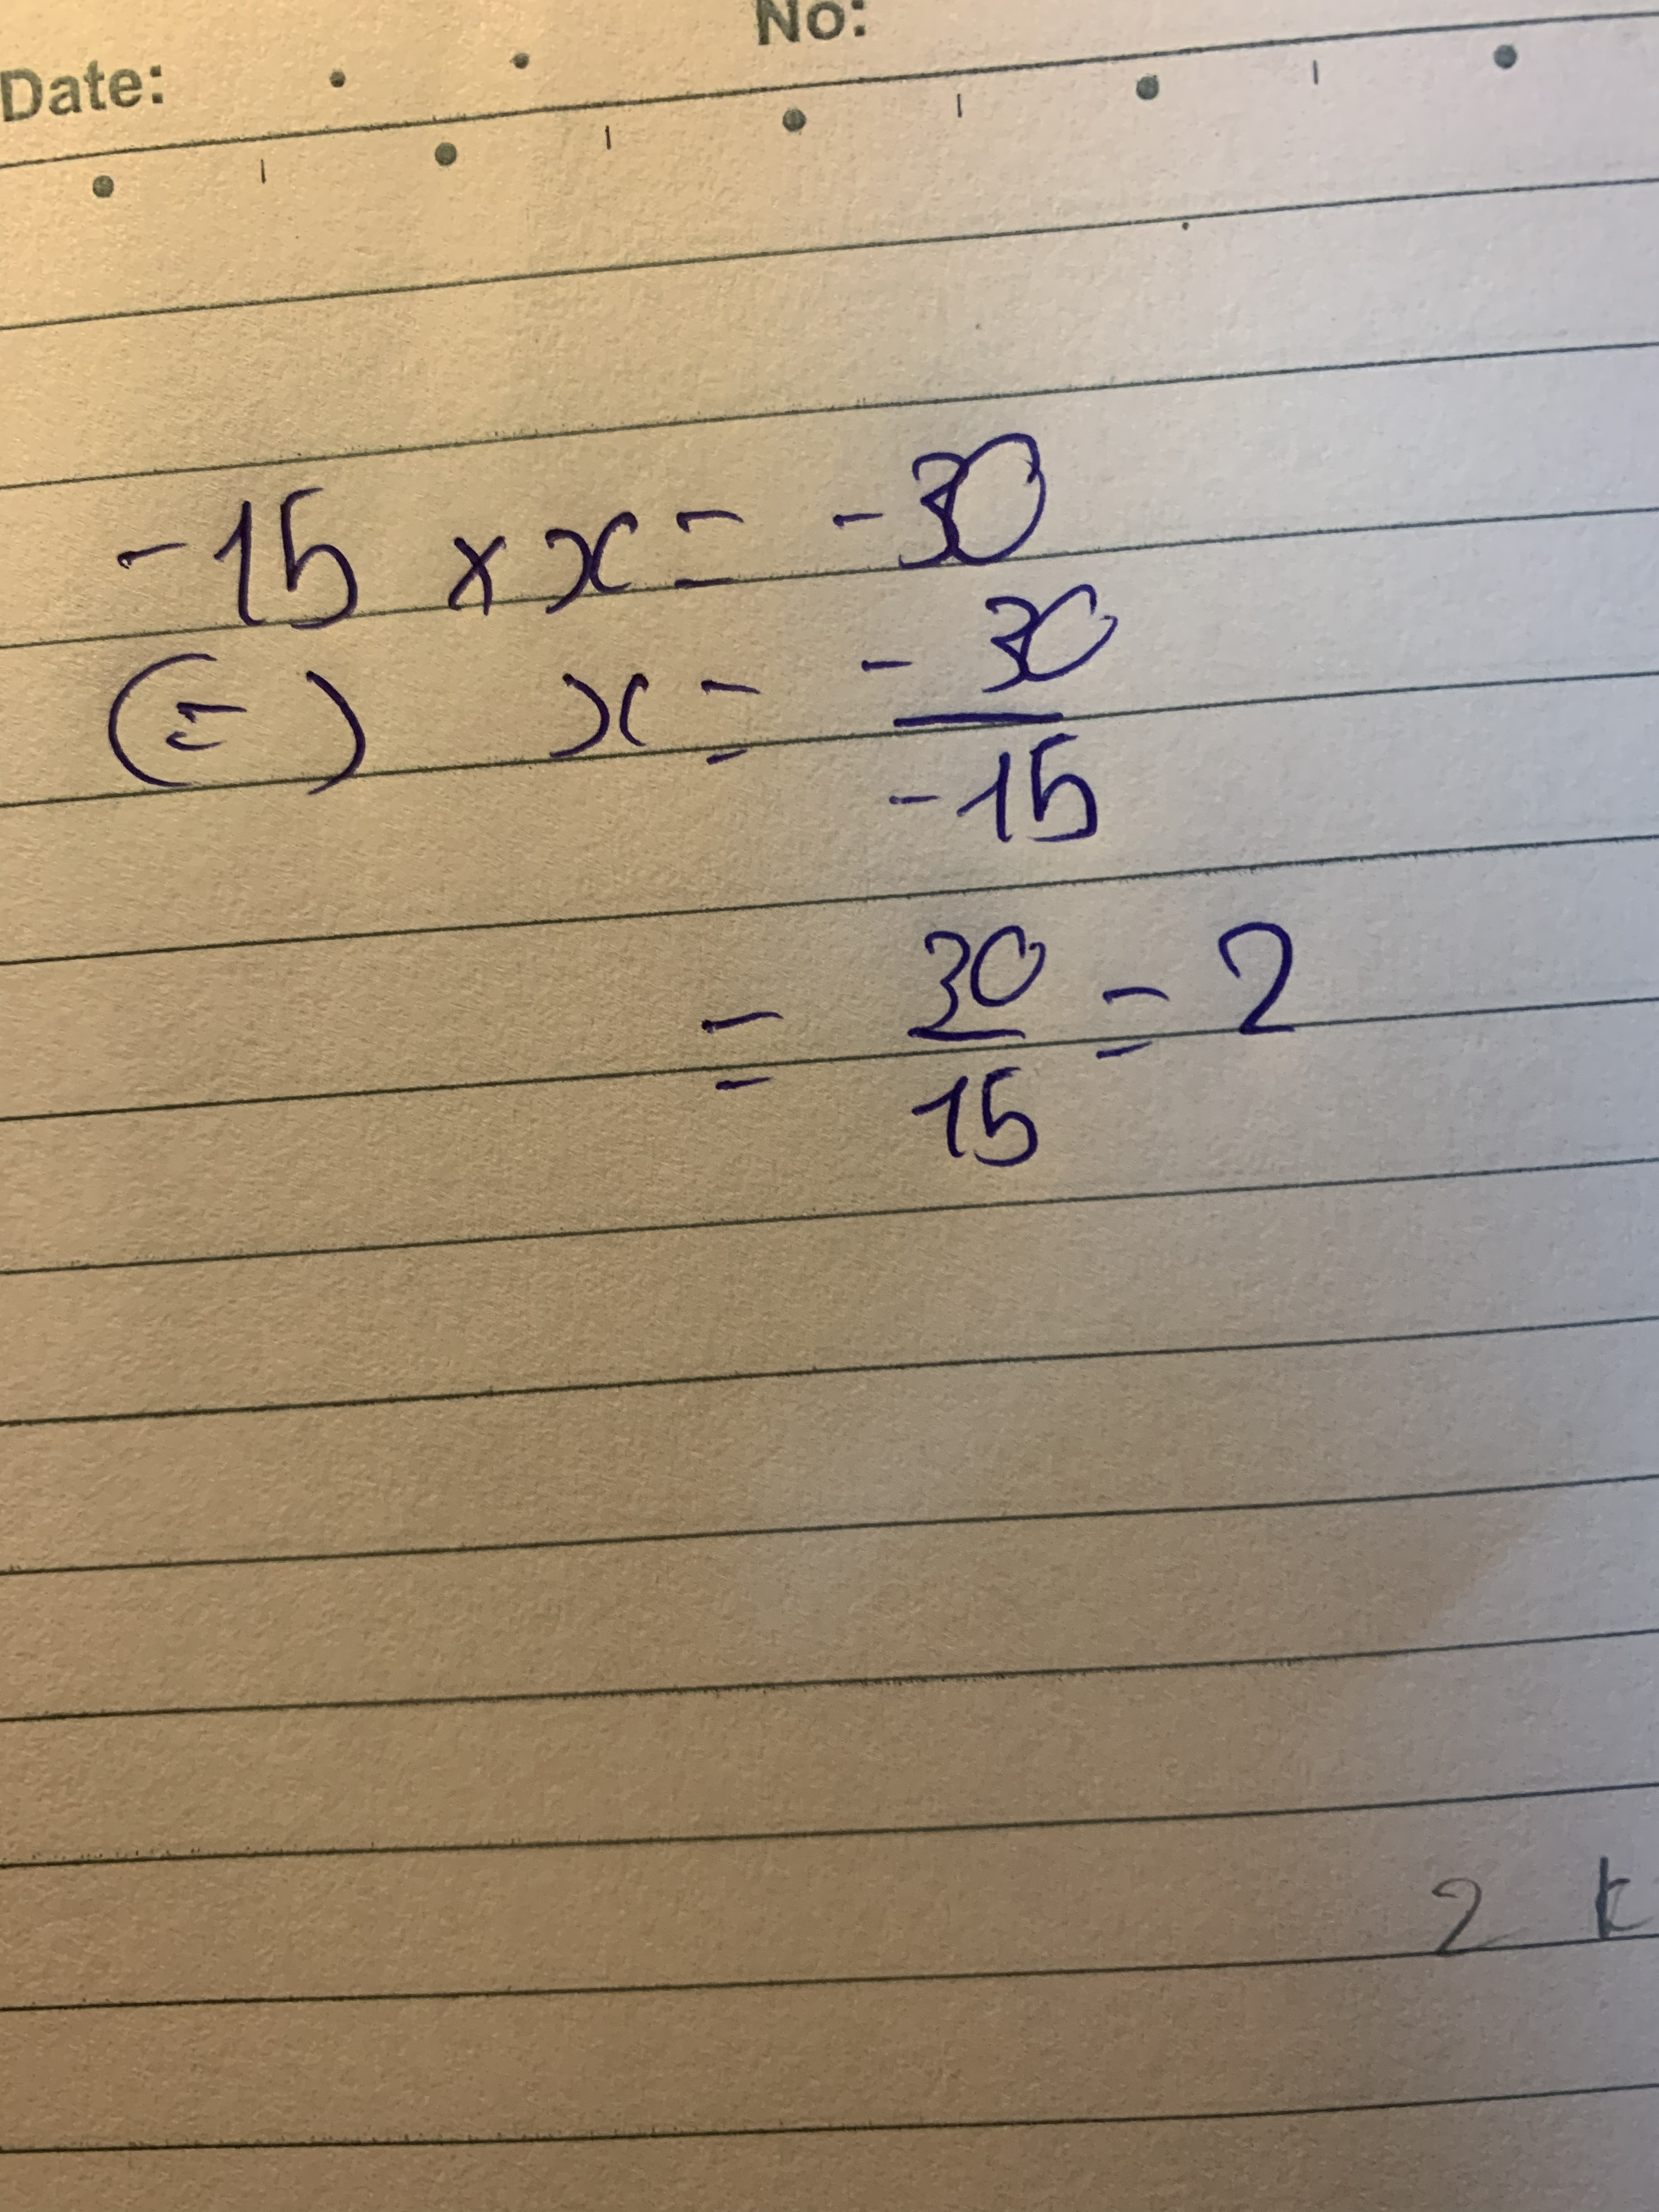 No:
Date:
-15 × x = -30
(=) x = -30/-15
= 30/15 = 2
2 k